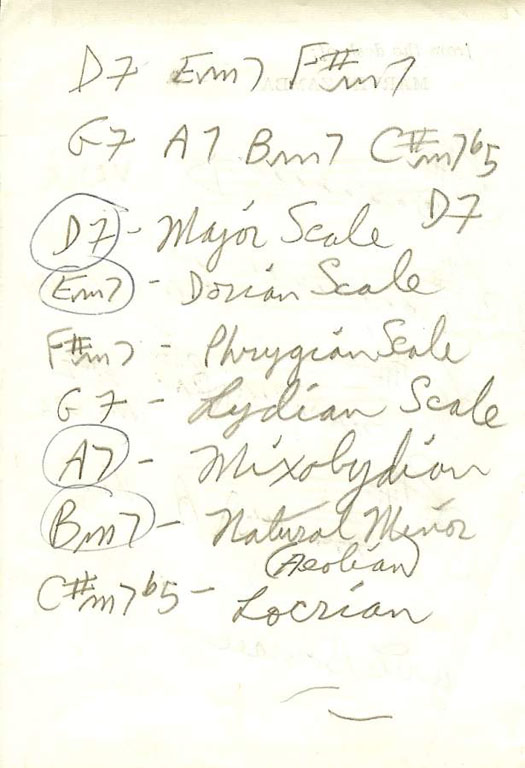 D7 Em7 F#m7
G7 A7 Bm7 C#m7b5
D7
D7 - Major Scale
Em7 - Dorian Scale
F#m7 - Phrygian Scale
G7 - Lydian Scale
A7 - Mixolydian
Bm7 - Natural Minor
(Aeolian)
C#m7b5 - Locrian